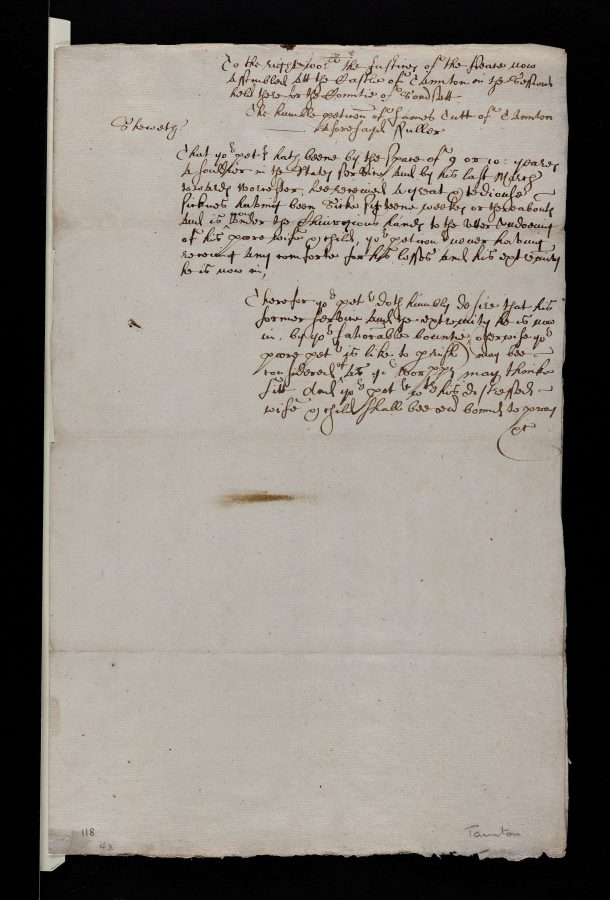 To the right wor:ll the Justices of the Peace now
Assembled Att the Castle of Taunton in the Sessions
held there for the Countie of Somsett
The humble peticon of James Cutt of Taunton
aforesayd Fuller
Sheweth
That yor: petr: hath beene by the space of 9 or 10: yeares
A souldier in the States service And by his last March
towards Worcester, hee received A great & tedious
sicknes having been sicke fifteene weekes or thereabouts
And is now under the Chirurgions hands to the utter undoeing
of his poore wife & child, yor: peticonr never having
received Any comforte for his losses And his extremity
he is now in,
Therefor yor petr doth humbly desire that his
former service And ye extremity he is now
in, by yor: favorable bountie, otherwise yor:
poore petr is like to perish) may bee
considered, As yor worpps may thinke
fitt And yor: petr wth his distressed
wife & child shall bee ever bound to pray
&c
118
4x
Taunton